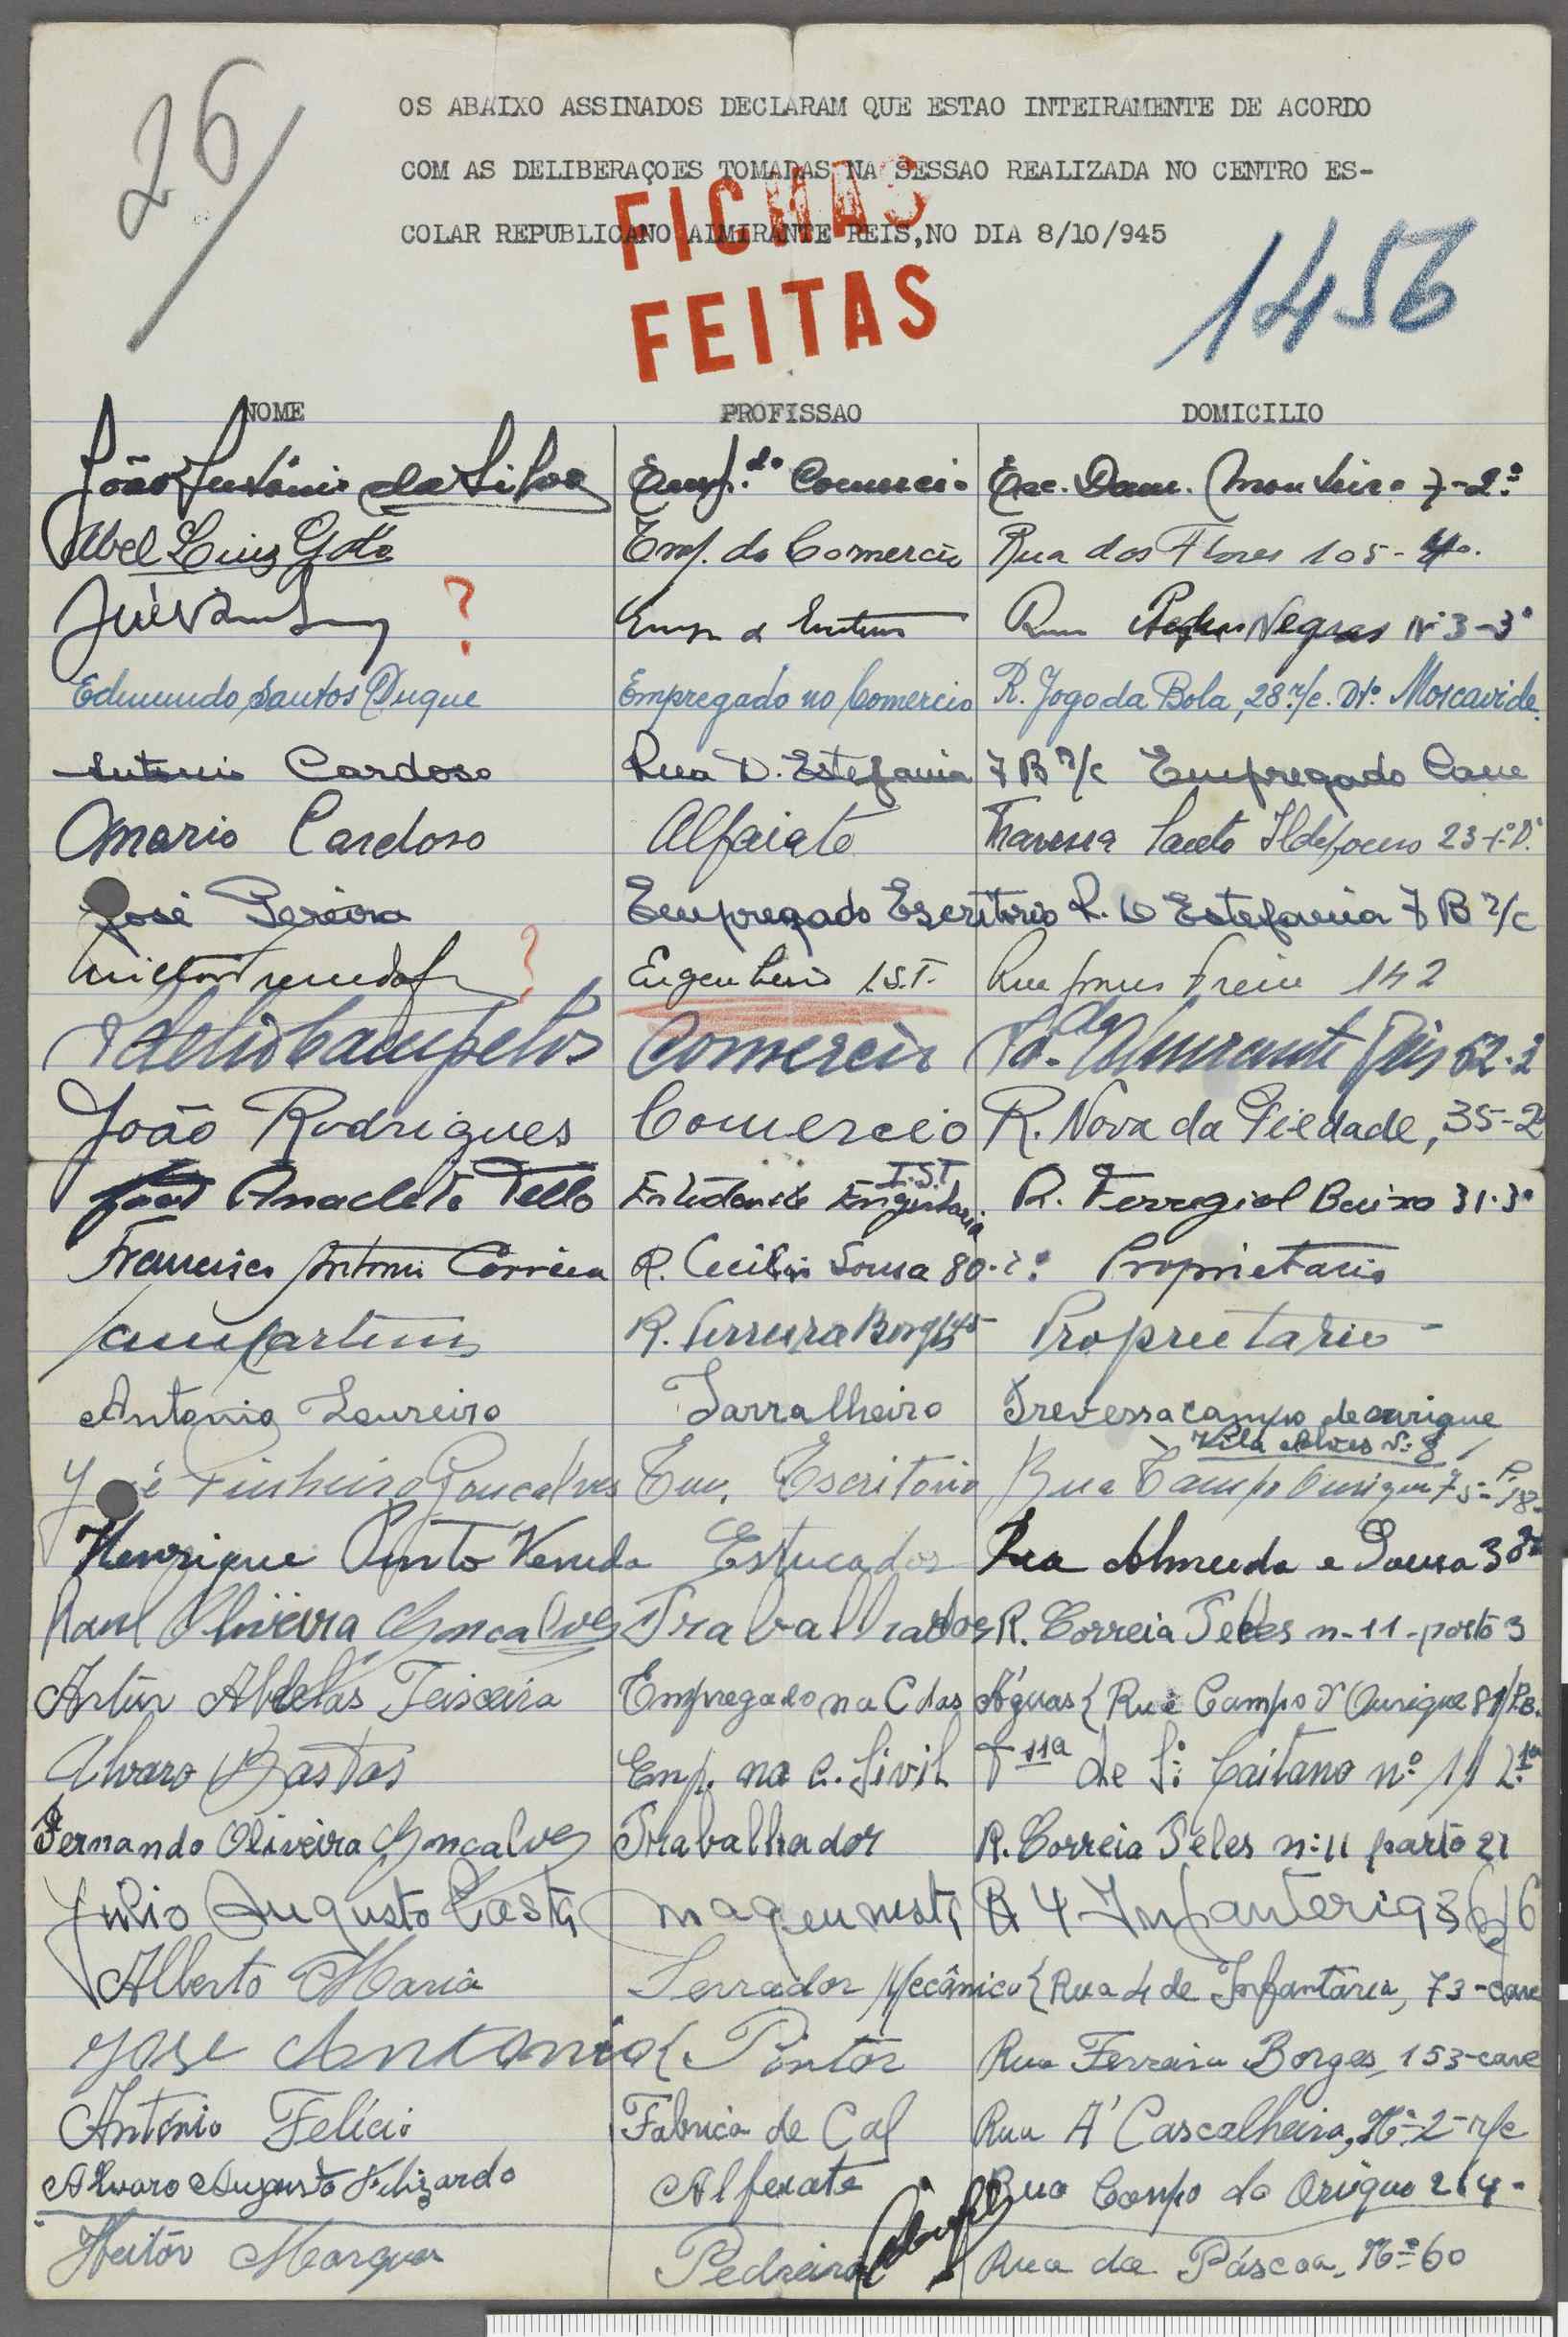 26
OS ABAIXO ASSINADOS DECLARAM QUE ESTAO INTEIRAMENTE DE ACORDO
COM AS DELIBERAÇOES TOMADAS NA SESSAO REALIZADA NO CENTRO ES-
COLAR REPUBLICANO ALMIRANTE REIS, NO DIA 8/10/945
FICHAS
FEITAS
1456
NOME PROFISSAO DOMICILIO
João da Silva Emp.do Comercio Esc. Dam. Monteiro 7-2º
Abel Luiz Emp. do Comercio Rua das Flores 105-4º.
? Rua Pedras Negras Nº 3-3º
Edmundo Santos Duque Empregado no Comercio R. Jogo da Bola, 28 r/c. Dtº. Moscavide
Antonio Cardoso Rua D. Estefania 7 B r/c Empregado
Mario Cardoso Alfaiate Travessa Santo Ildefonso 23-1º D.
José Pereira Empregado Escritorio R. D Estefania 7 B r/c
? Engenheiro I.S.T. Rua 142
Comercio Almirante Reis 62-2
João Rodrigues Comercio R. Nova da Piedade, 35-2
Anacleto Tello Estudante Engenharia I.S.T R. Ferregial Baixo 31-3º
Francisco Antonio Correia R. Cecilio Sousa 80-2º Proprietario
R. Ferreira Borges 145 Proprietario -
Antonio Loureiro Sarralheiro Trevessa campo de ourique
Vila Nº 8
José Pinheiro Gonçalves Em. Escritório Rua Campo Ourique 75-
Henrique Pinto Estucador Rua Almeida e Sousa 38
Raul Oliveira Gonçalves Trabalhador R. Correia Teles n-11-porto 3
Artur Teixeira Empregado na C das Águas { Rua Campo d'Ourique 81
Alvaro Bastos Emp. na C. Sivil de S. Caitano nº 11
Fernando Oliveira Gonçalves Trabalhador R. Correia Teles nº 11 parto 21
Julio Augusto Costa R 4 Infanteria
Alberto Maria Serrador Mecânico { Rua 4 de Infantaria, 73-cave
José Antonio { Pintor Rua Ferreira Borges, 153-cave
António Felício Fabrica de Cal Rua A' Cascalheira, Nº-2-r/c
Alvaro Augusto Felizardo Alfexate Rua Campo do Orique 214-
Heitôr Marques Pedreiro Rua da Páscoa, Nº 60